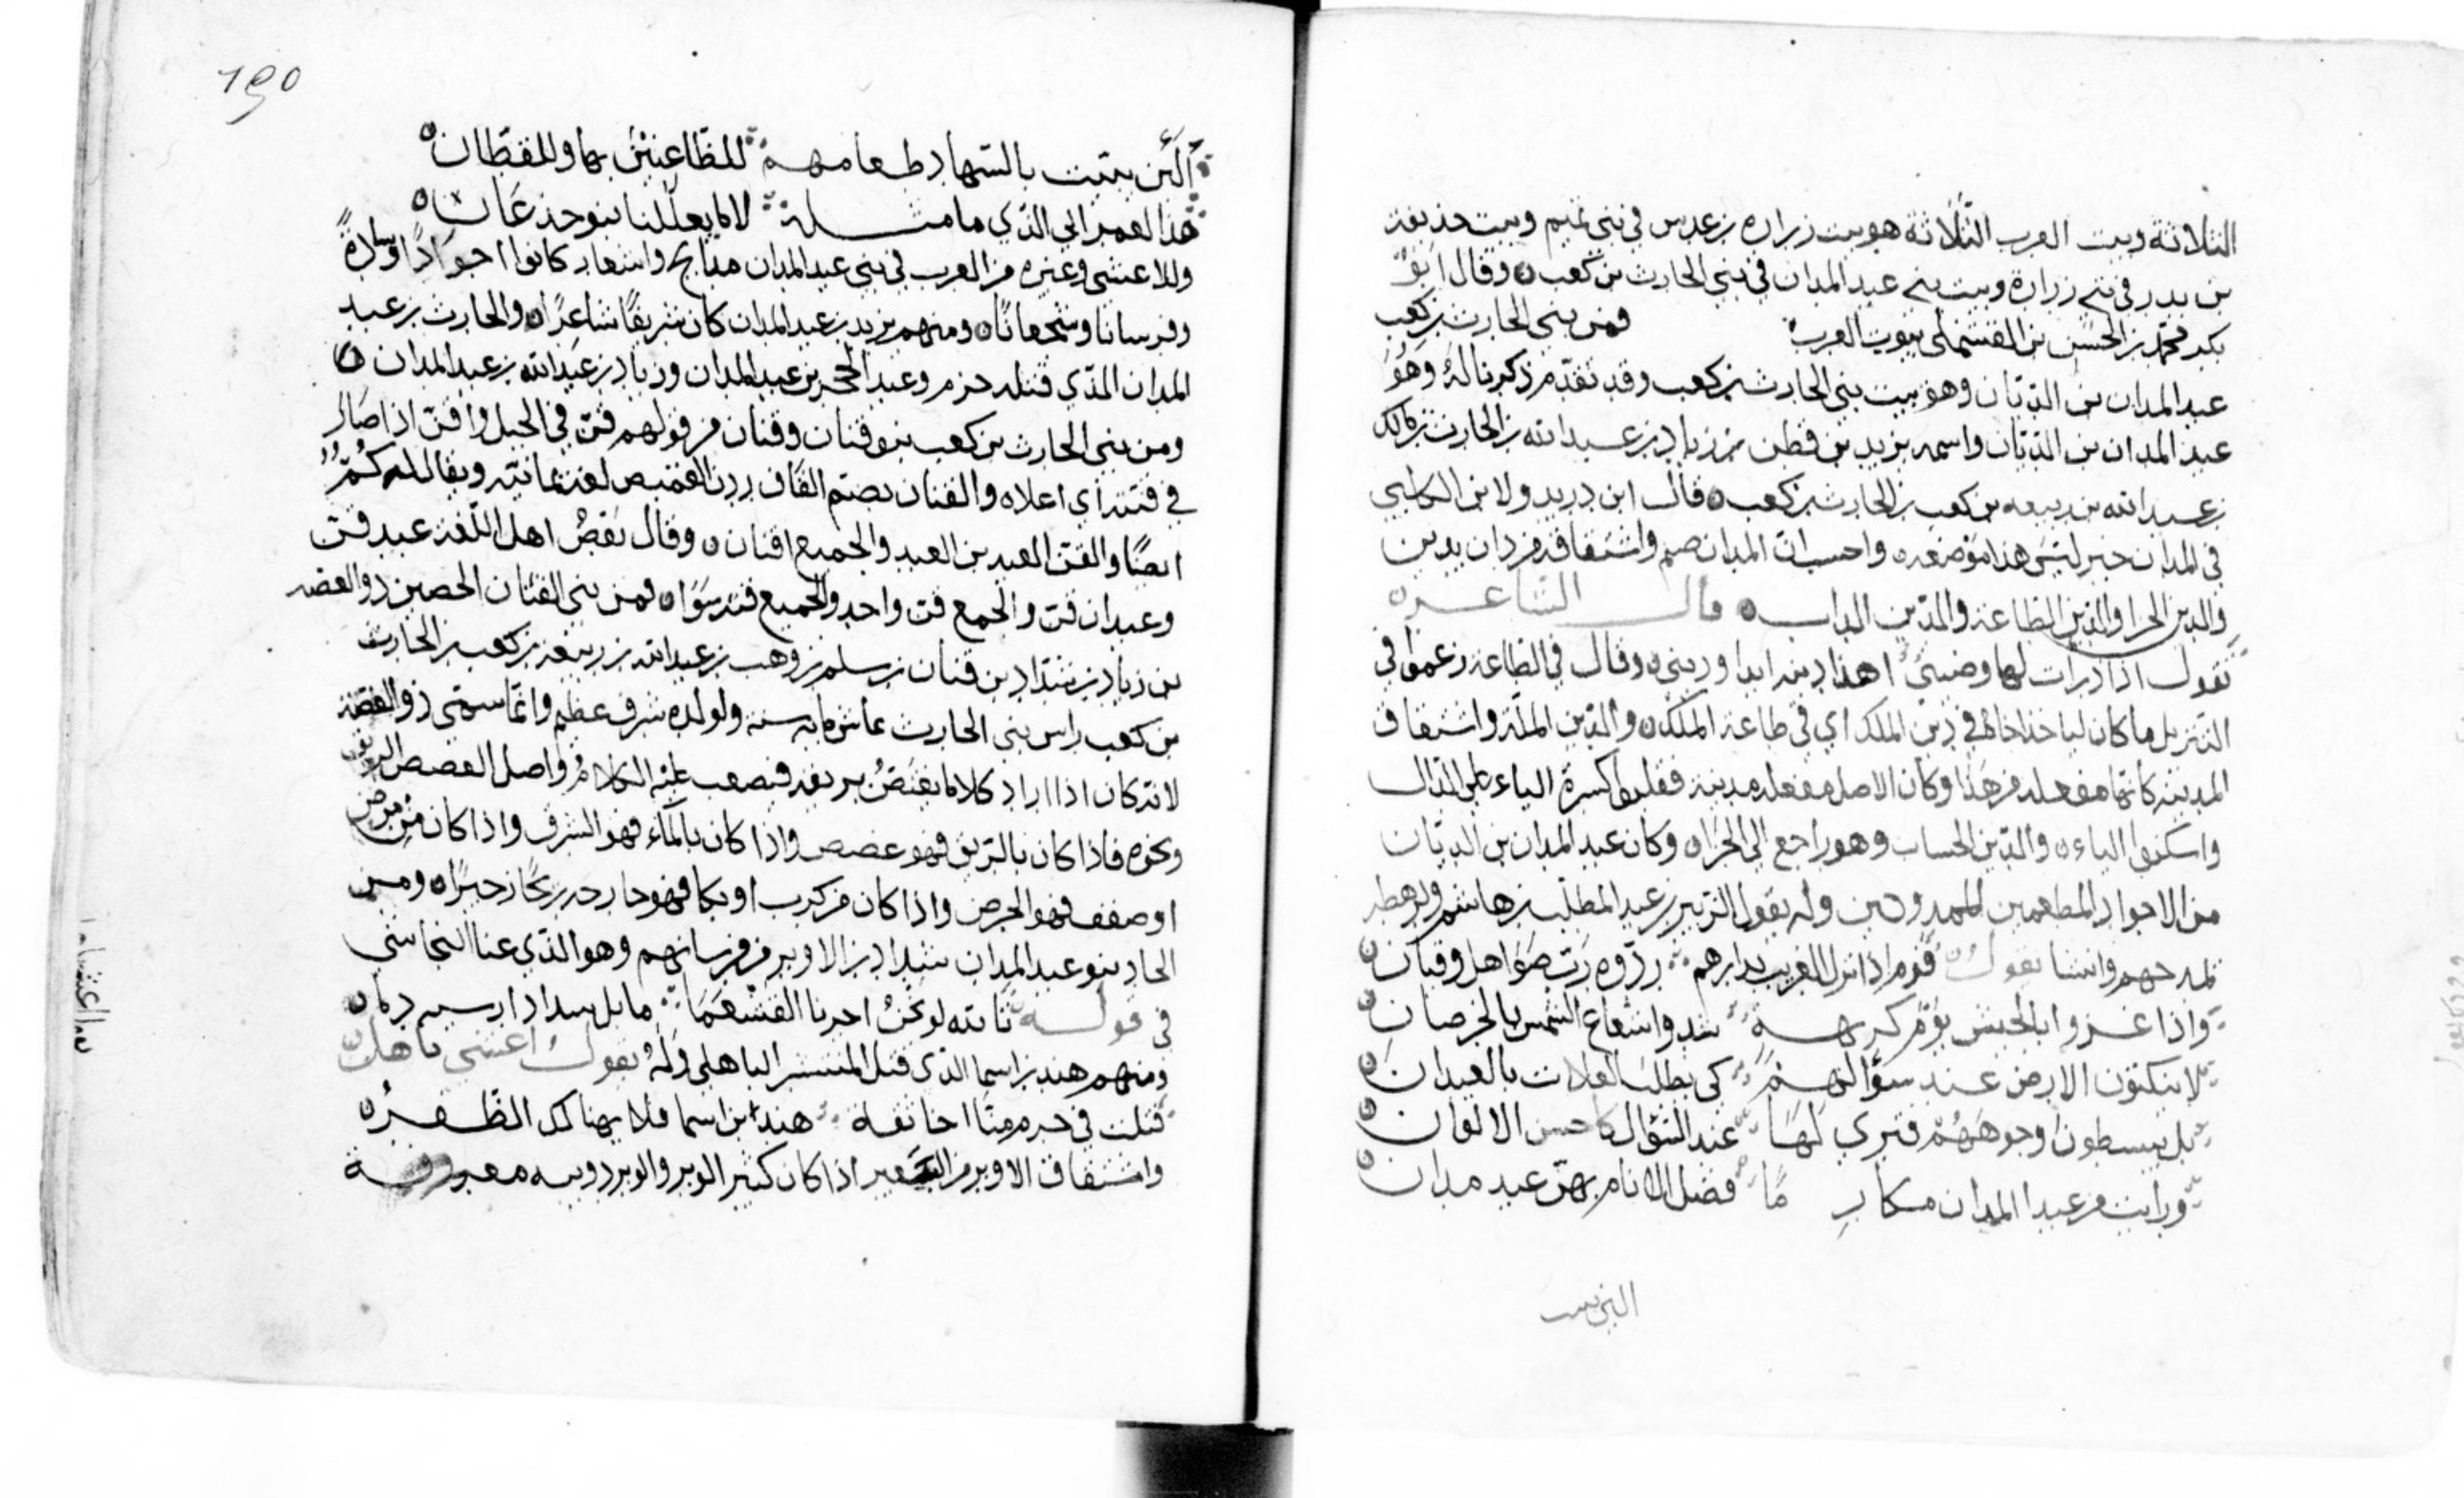 الثلاثة وبيت العرب الثلاثة هو بيت زراره بن عدس في بني تميم وبيت حذيفة
بن بدر في بني زرارة وبيت بني عبد المدان في بني الحارث بن كعب ه وقال ابو
بكر محمد بن الحسن بن بيوت العرب فمن بني الحارث بن كعب
عبد المدان بن الديّان وهو بيت بني الحارث بن كعب وقد تقدّم ذكرنا لهُ وهُو
عبد المدان بن الديّان واسمه يزيد بن قطن بن زياد بن عبد الله بن الحارث بن مالك
بن عبد الله بن ربيعه بن كعب بن الحارث بن كعب ه قال ابن دريد ولابن الكلبي
في المدان خبر ليس هذا موضعه واحسب ان المدان صنم واشتقاقه من دان يدين
والدين الجزا والدين الطاعة والدّين الداب ه قال الشاعر ه
تقول اذا درات لها وضيني اهذا دينه ابدا وديني ه وقال في الطاعة زعموا في
التنزيل ما كان لياخذ اخاه في دين الملك اي في طاعة الملك ه والدّين الملّة واشتقاق
المدينة كانها مفعله من هذا وكان الاصل مفعله مدينة فقلبوا كسرة الياء على الدال
واسكنوا الياء ه والدّين الحساب وهو راجع الي الجزا ه وكان عبد المدان بن الديّان
من الاجواد المطعمين الممدوحين وله يقول الزبير بن عبد المطّلب بن هاشم ولرهطه
يمدحهم وانشا يقول قَوْم اذا نزل الغريب بدارهم ردّوه ربّ صَوَاهل وقيان ه
واذا غزوا بالجيش يَوْم كريهة سدوا شعاع الشمس بالخرصان
لا ينكتون الارض عند سؤالهمْ كي يطلب العلات بالعيدان ه
بل يبسطون وجوههُمْ فتري لَهَا عند السؤال كاحسن الالوان ه
ورايت من عبد المدان مكارِ مًا فضل الانام بهنّ عبد مدان ه

195
البُرّ يبيت بالشهاد طعامهم للظاعِنِيْنَ بها وللقطّان ه
هَذا لعمر ابي الذي ما مثله لا ما يعلّلنا بنو جذعَان ه
وللاعشي وغيره من العرب في بني عبد المدان مدايح واشعار كانوا اجوَادًا وسادةً
وفرسانا وشجعانًا ه ومنهم يزيد بن عبد المدان كان شريفًا شاعرًا ه والحارث بن عبد
المدان الذي قتله جرم وعبد الحجر بن عبد المدان وزياد بن عبد الله بن عبد المدان ه
ومن بني الحارث بن كعب بنو قنان وقنان من قولهم قنّ في الجبل واقتنّ اذا صار
في قنته اي اعلاه والقنان بضم القاف ردن القميص لغة يمانيّة ويقال له كُمٌّ
ايضًا والقنّ العبد بن العبد والجميع اقنان ه وقال بَعْضُ اهل اللّغة عبد قنّ
وعبدان قنّ والجمع قن واحد والجميع فيه سَوَا ه فمن بني القنان الحصين ذو الغصّه
بن زياد بن شدّاد بن قنان بن سلمه بن وهب بن عبد الله بن ربيعه بن كعب بن الحارث
بن كعب راس بني الحارث عاش مايه سنة ولولده شرف عظيم وانّما سمّي ذو الغصّة
لانه كان اذا اراد كلاما يغتصُّ بريقه فيصعب عليْه الكلامُ واصل الغصص الريق
ونحوه فاذا كان بالريق فهو غصص واذا كان بالمآء فهو الشرق واذا كان من مرض
او ضعف فهو الجرض واذا كان من كرب او بكا فهو
بنو عبد المدان شداد بن الاوبر من فرسانهم وهو الذي عنا النجاشي
في قوله تا لله لو
ومنهم هند بن اسما الذي قتل المنتشر الباهلي ولَهُ يقول اعشي باهله
قتلت في حرم منّا اخا ثقة هند ابن اسما فلا يهنا لك الظفر ه
واشتقاق الاوبر من البعير اذا كان كثير الوبر والوبر دويبه معروفة